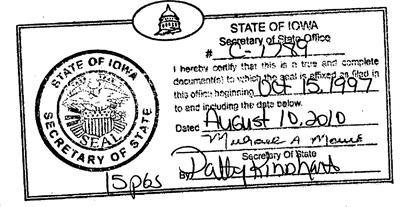 STATE OF IOWA
Secretary of State Office
# C-1289
I hereby certify that this is a true and complete
document(s) to which the seal is affixed as filed in
this office beginning Oct 15, 1997
to and including the date below.
Dated August 10, 2010
Michael A Mauro
Secretary Of State
By Patty Rinehart
STATE OF IOWA
SECRETARY OF STATE
SEAL
15pgs